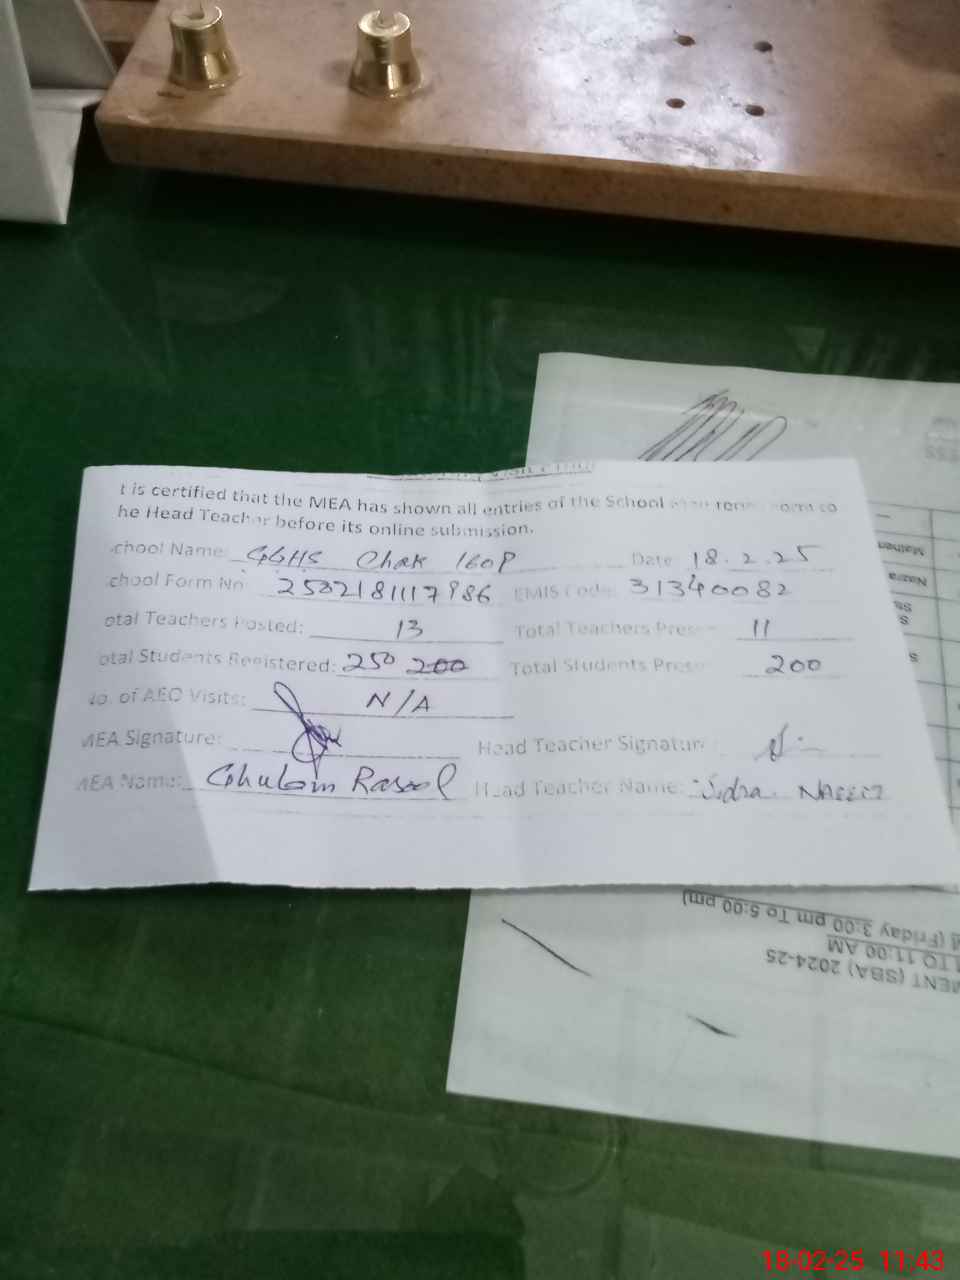 t is certified that the MEA has shown all entries of the School
he Head Teacher before its online submission.
chool Name: GGHS Chak 160P Date: 18.2.25
chool Form No: EMIS Code: 31340082
otal Teachers Posted: 13 Total Teachers Prese 11
otal Students Registered: 250 200 Total Students Prese 200
No. of AEO Visits: N/A
MEA Signature: Head Teacher Signatur
MEA Name: Ghulam Rasool Head Teacher Name: Sidra Naseer
Mathem
Nazra
SS
S
S
(Friday 3:00 pm To 5:00 pm)
TO 11:00 AM
MENT (SBA) 2024-25
18-02-25 11:43